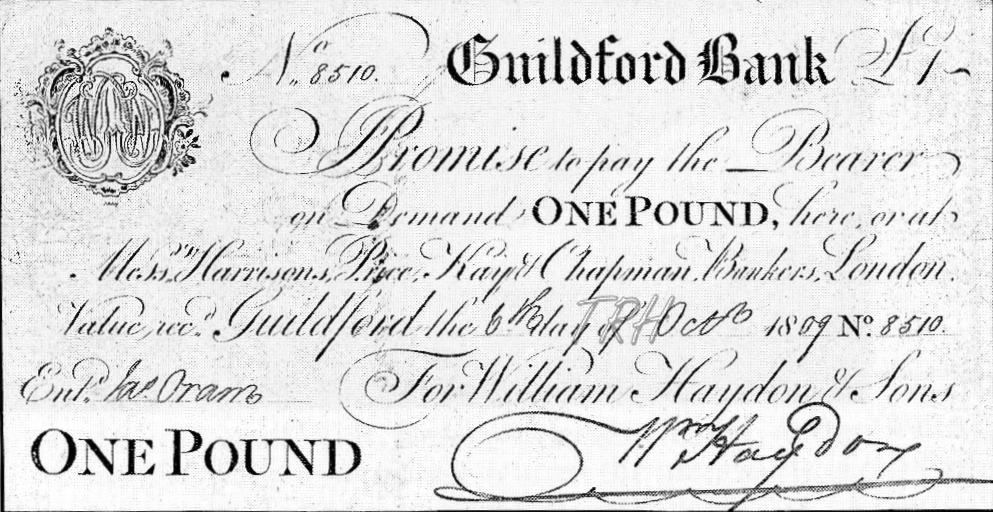 No. 8510. Guildford Bank £1-
I Promise to pay the Bearer
on Demand ONE POUND, here, or at
Messrs. Harrisons, Price, Kay & Chapman, Bankers, London.
Value, rec.d Guildford the 6th day of Octr 1809 No. 8510.
TRH
Ent.d Jas. Oram For William Haydon & Sons
ONE POUND Wm Haydon